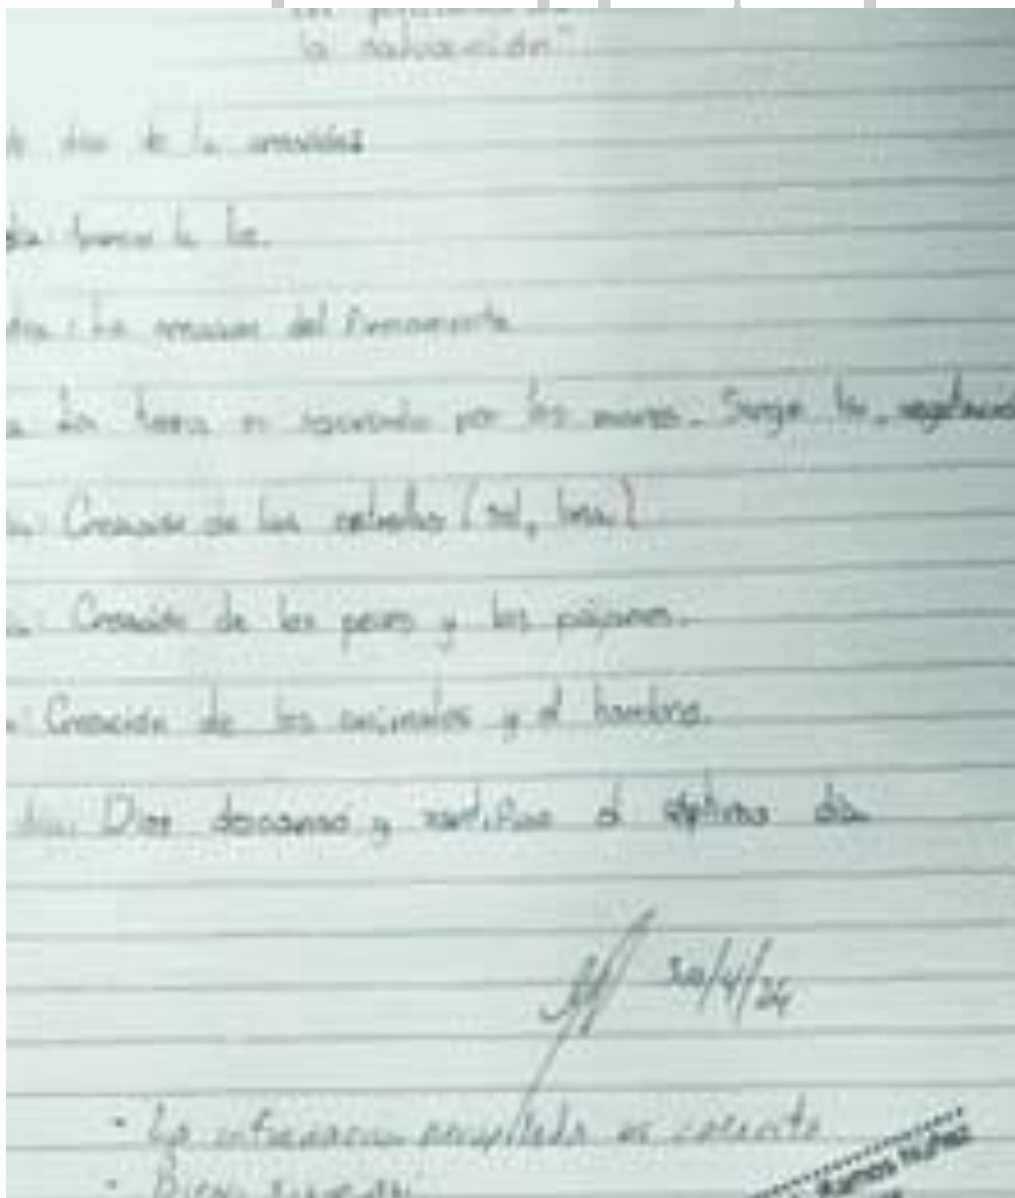 la salvación"
día de la creación:
día: la luz.
día: La creación del firmamento
La tierra es rodeada por los mares. Surge la vegetación
Creación de las estrellas (sol, luna)
Creación de los peces y los pájaros.
Creación de los animales y el hombre.
día: Dios descansó y santifico el séptimo día
30/4/24
- La información recopilada es correcta
- Buen
Ramos Núñez